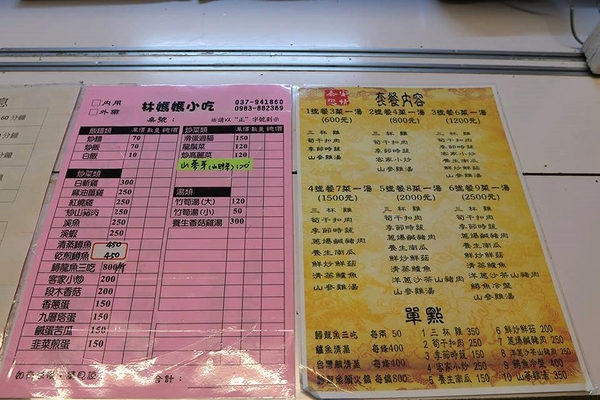 □內用
□外帶
林媽媽小吃
037-941860
0983-882369
桌號:
※請以"正"字號劃示
飯麵類 單價 數量 總價
炒麵 70
炒飯 70
白飯 10
炒菜類
白斬雞 300
麻油薑雞 250
紅燒雞 250
炒山豬肉 250
溪魚 250
溪蝦 250
清蒸鱒魚 450
乾煎鱒魚 450
鱘龍魚三吃 800/斤
客家小炒 200
段木香菇 200
香蔥蛋 150
九層塔蛋 150
鹹蛋苦瓜 150
韭菜煎蛋 150
炒菜類 單價 數量 總價
滑蛋過貓 150
龍鬚菜 120
炒高麗菜 120
湯類
竹筍湯(大) 120
竹筍湯(小) 50
養生香菇雞湯 300
合計:
套餐內容
1號餐3菜一湯
(600元)
三杯雞
筍干扣肉
季節時蔬
山蔘雞湯
2號餐4菜一湯
(800元)
三杯雞
筍干扣肉
季節時蔬
客家小炒
山蔘雞湯
3號餐6菜一湯
(1200元)
三杯雞
筍干扣肉
季節時蔬
客家小炒
養生南瓜
鮮炒鮮菇
山蔘雞湯
4號餐7菜一湯
(1500元)
三杯雞
筍干扣肉
季節時蔬
蔥爆鹹豬肉
養生南瓜
鮮炒鮮菇
清蒸鱸魚
山蔘雞湯
5號餐8菜一湯
(2000元)
三杯雞
筍干扣肉
季節時蔬
蔥爆鹹豬肉
養生南瓜
鮮炒鮮菇
清蒸鱸魚
洋蔥沙茶山豬肉
山蔘雞湯
6號餐9菜一湯
(2500元)
三杯雞
筍干扣肉
季節時蔬
蔥爆鹹豬肉
養生南瓜
鮮炒鮮菇
清蒸鱸魚
洋蔥沙茶山豬肉
鱒魚冷盤
山蔘雞湯
單點
鱘龍魚三吃 每兩 50
鱸魚清蒸 每條400
台灣鯛清蒸 每條400
每鍋800
1 三杯雞 350
2 筍干扣肉 250
3 季節時蔬 150
4 客家小炒 200
5 養生南瓜 150
6 鮮炒鮮菇 200
7 蔥爆鹹豬肉 250
8 洋蔥沙茶山豬肉 250
9 鱒魚冷盤 400
10 山蔘雞湯 350